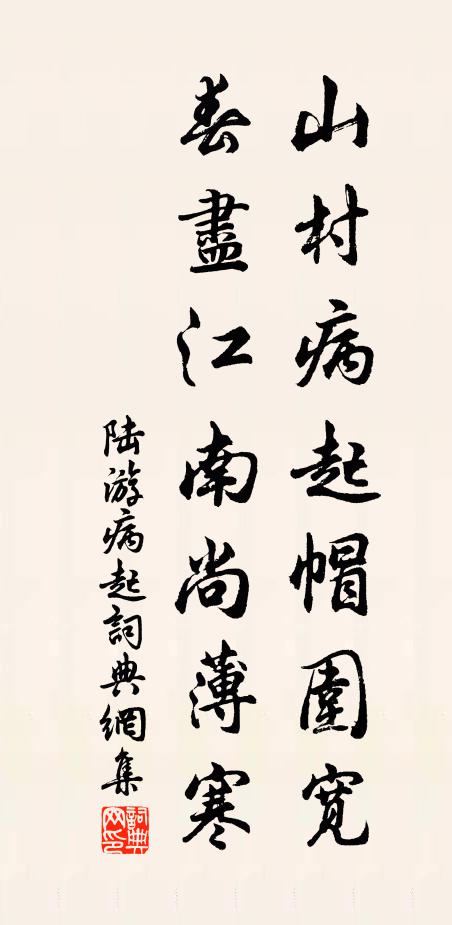 山村病起帽圍寬
春盡江南尚薄寒
陆游病起詞典網集
詞典網印